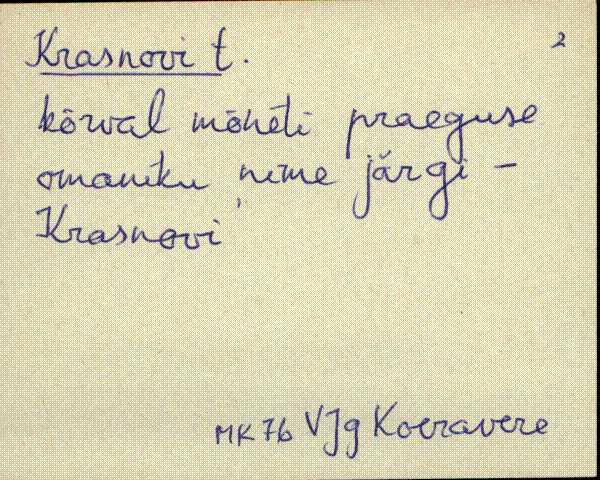 Krasnovi t. 2
kõrval mõnéti praeguse
omaniku nime järgi -
Krasnovi
MK 76 VJg Koeravere